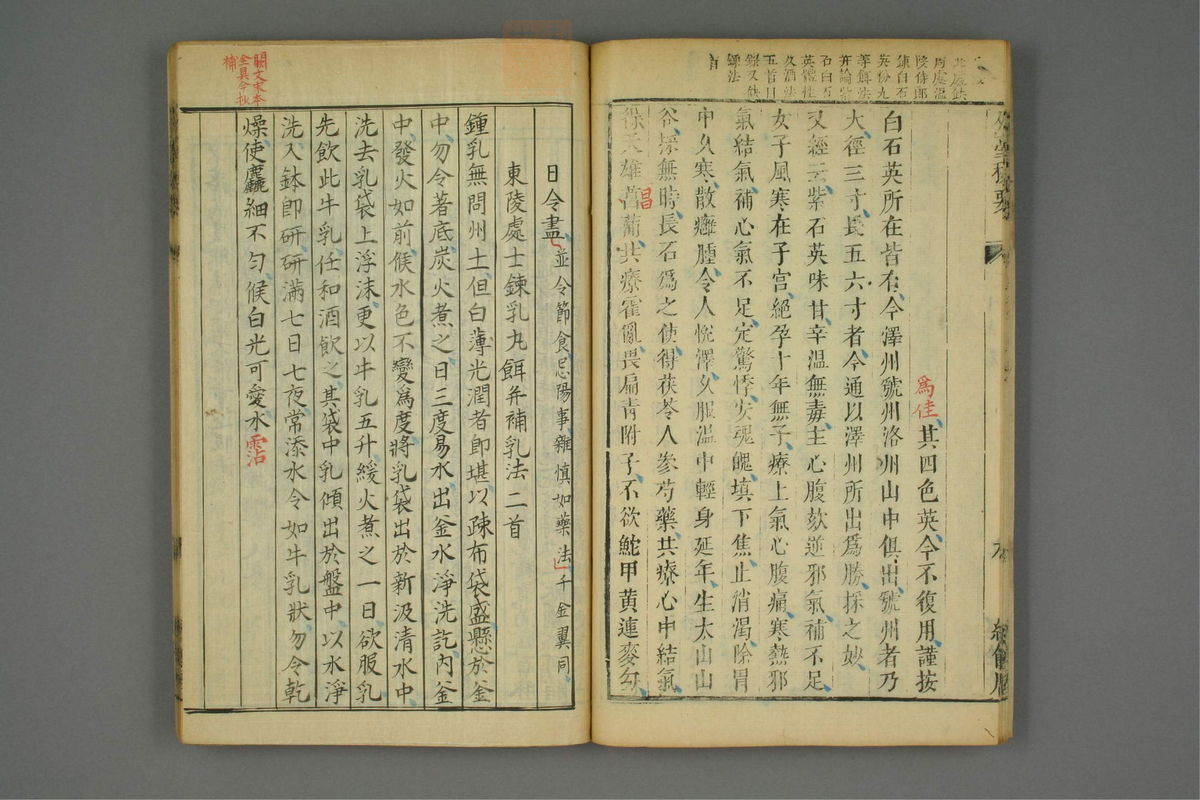 爲佳
其四色英今不復用謹按
白石英所在皆有今澤州虢州洛州山中俱出虢州者乃
大徑三寸長五六寸者今通以澤州所出爲勝採之妙
又經云紫石英味甘辛溫無毒主心腹欬逆邪氣補不足
女子風寒在子宮絕孕十年無子療上氣心腹痛寒熱邪
氣結氣補心氣不足定驚悸安魂魄填下焦止消渴除胃
中久寒散癰腫令人悅澤久服溫中輕身延年生太山山
谷採無時長石爲之使得茯苓人參芍藥共療心中結氣
得天雄菖蒲共療霍亂畏扁青附子不欲鮀甲黃連麥句
昌
日令盡並令節食忌陽事雜慎如藥法千金翼同
東陵處士鍊乳丸餌并補乳法二首
鍾乳無問州土但白薄光潤者即堪以疎布袋盛懸於釜
中勿令著底炭火煮之日三度易水出釜水淨洗訖內釜
中發火如前候水色不變爲度將乳袋出於新汲清水中
洗去乳袋上浮沫更以牛乳五升緩火煮之一日欲服乳
先飲此牛乳任和酒飲之其袋中乳傾出於盤中以水淨
洗入鉢即研研滿七日七夜常添水令如牛乳狀勿令乾
燥使麤細不勻候白光可愛水霑
闕文宋本
全具今秋
補